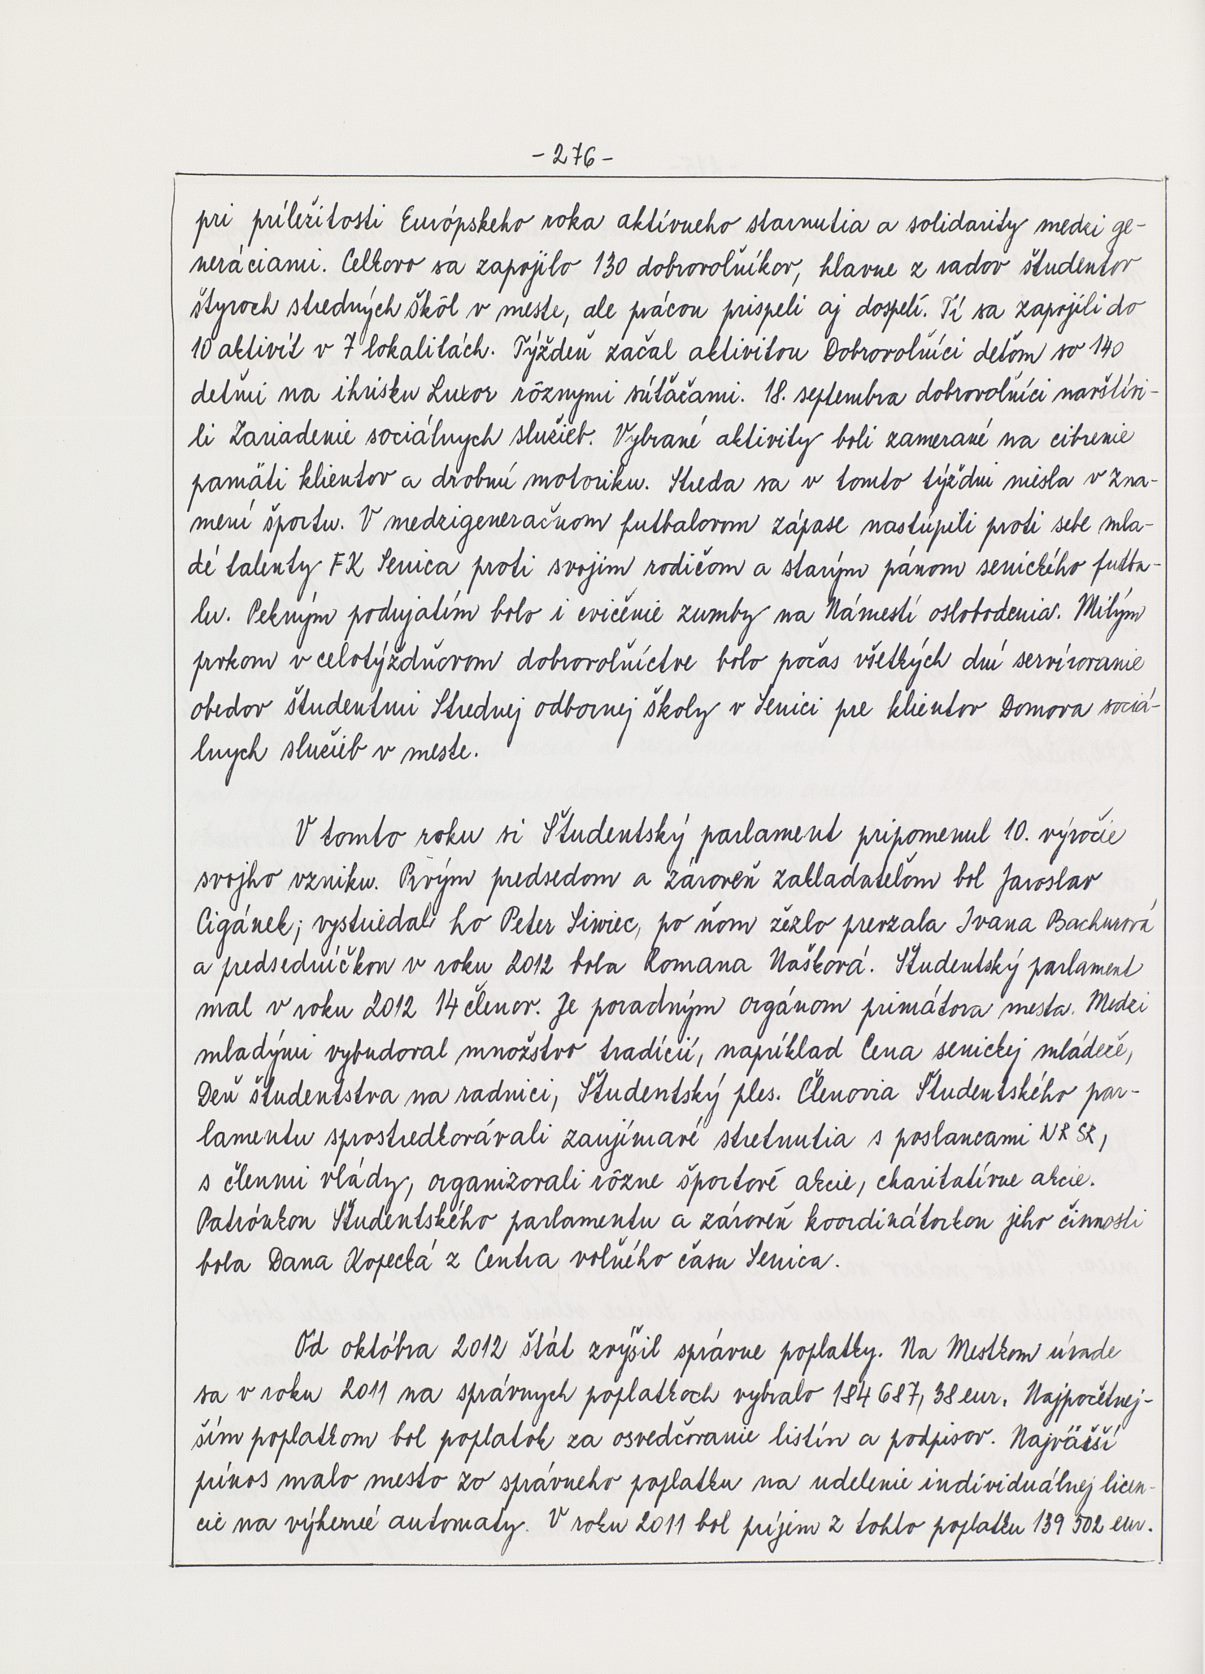 - 276 -
pri príležitosti Európskeho roka aktívneho starnutia a solidarity medzi ge-
neráciami. Celkovo sa zapojilo 130 dobrovoľníkov, hlavne z radov študentov
štyroch stredných škôl v meste, ale prácou prispeli aj dospelí. Tí sa zapojili do
10 aktivít v 7 lokalitách. Týždeň začal aktivitou Dobrovoľníci deťom so 140
deťmi na ihrisku Luxor rôznymi súťažami. 18. septembra dobrovoľníci navštívi-
li Zariadenie sociálnych služieb. Vybrané aktivity boli zamerané na cibrenie
pamäti klientov a drobnú motoriku. Streda sa v tomto týždni niesla v zna-
mení športu. V medzigeneračnom futbalovom zápase nastúpili proti sebe mla-
dé talenty FK Senica proti svojim rodičom a starým pánom senického futba-
lu. Pekným podujatím bolo i cvičenie zumby na Námestí oslobodenia. Milým
prvkom v celotýždňovom dobrovoľníctve bolo počas všetkých dní servírovanie
obedov študentmi Strednej odbornej školy v Senici pre klientov Domova sociá-
lnych služieb v meste.
V tomto roku si Študentský parlament pripomenul 10. výročie
svojho vzniku. Prvým predsedom a zároveň zakladateľom bol Jaroslav
Cigánek; vystriedal ho Peter Siwiec, po ňom žezlo prevzala Ivana Bachurová
a predsedníčkou v roku 2012 bola Romana Nášková. Študentský parlament
mal v roku 2012 14 členov. Je poradným orgánom primátora mesta. Medzi
mladými vybudoval množstvo tradícií, napríklad Cena senickej mládeže,
Deň študentstva na radnici, Študentský ples. Členovia Študentského par-
lamentu sprostredkovávali zaujímavé stretnutia s poslancami NR SR,
s členmi vlády, organizovali rôzne športové akcie, charitatívne akcie.
Patrónkou Študentského parlamentu a zároveň koordinátorkou jeho činnosti
bola Dana Kopecká z Centra voľného času Senica.
Od októbra 2012 štát zvýšil správne poplatky. Na Mestkom úrade
sa v roku 2011 na správnych poplatkoch vybralo 184 687, 38 eur. Najpočetnej-
ším poplatkom bol poplatok za osvedčovanie listín a podpisov. Najväčší
prínos malo mesto zo správneho poplatku na udelenie individuálnej licen-
cie na výherné automaty. V roku 2011 bol príjem z tohto poplatku 139 502 eur.